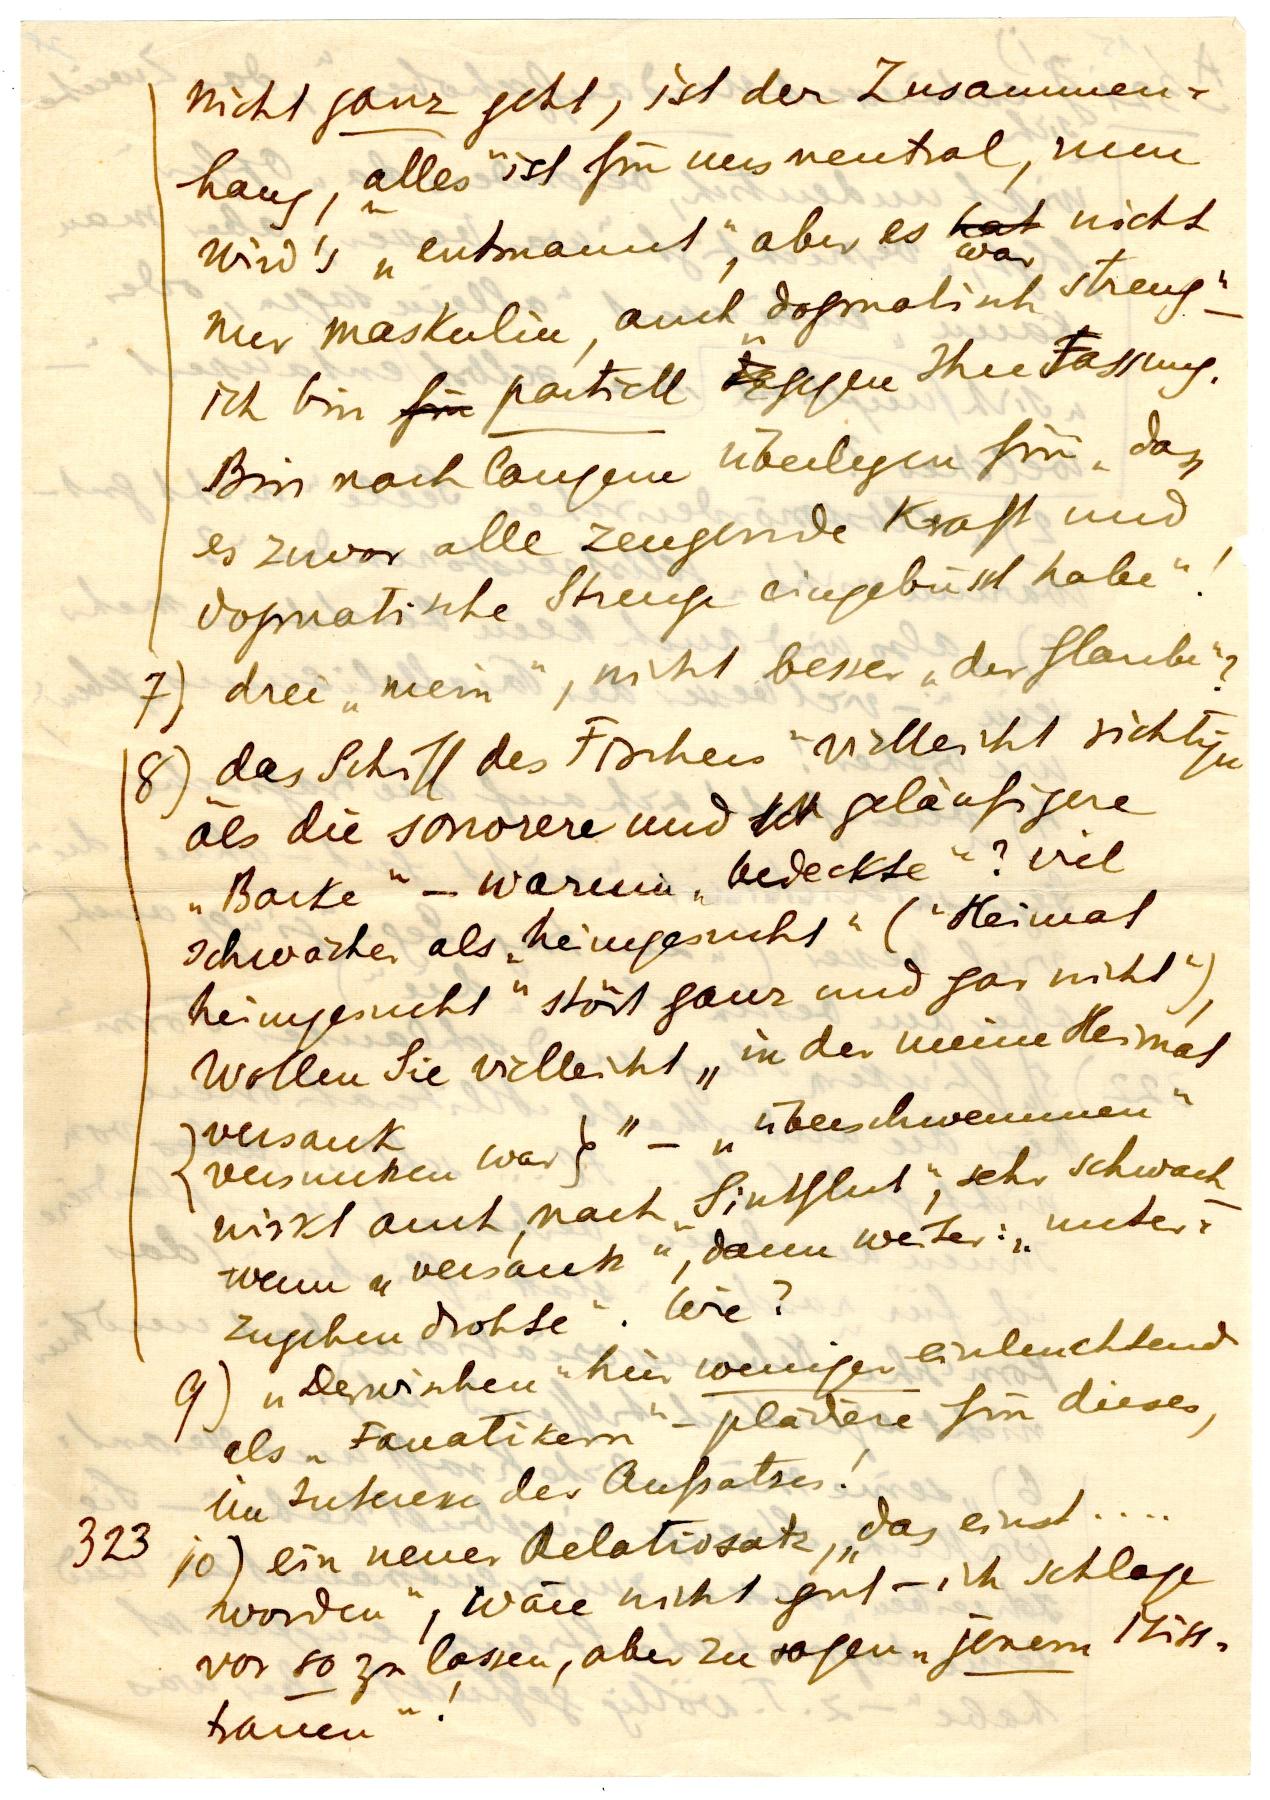 nicht ganz geht, ist der Zusammen-
hang, „alles“ ist für uns neutral, nun
wird's „entmannt“, aber es hat war nicht
nur maskulin, auch „dogmatisch streng“ –
ich bin für partiell gegen Ihre Fassung.
Bin nach langem Überlegen für „daß
es zuvor alle zeugende Kraft und
dogmatische Strenge eingebüsst habe“!
7) drei „mein“, nicht besser „der Glaube“?
8) „das Schiff des Fischers“ vielleicht richtiger
als die sonorere und geläufigere
„Barke“ – warum „bedeckte“? viel
schwächer als „heimgesucht“ („Heimat
heimgesucht“ stört ganz und gar nicht“),
Wollen Sie vielleicht „in der meine Heimat
{versank
versunken war}“ – „überschwemmen“
wirkt auch, nach „Sintflut“, sehr schwach –
wenn „versank“, dann weiter: „unter-
zugehen drohte“. Wie?
9) „Derwischen“ hier weniger einleuchtend
als „Fanatikern“ – plädiere für dieses,
im Interesse des Aufsatzes!
323 10) ein neuer Relativsatz, „das einst ....
worden“, wäre nicht gut – ich schlage
vor so zu lassen, aber zu sagen „jenem Miss-
trauen“!